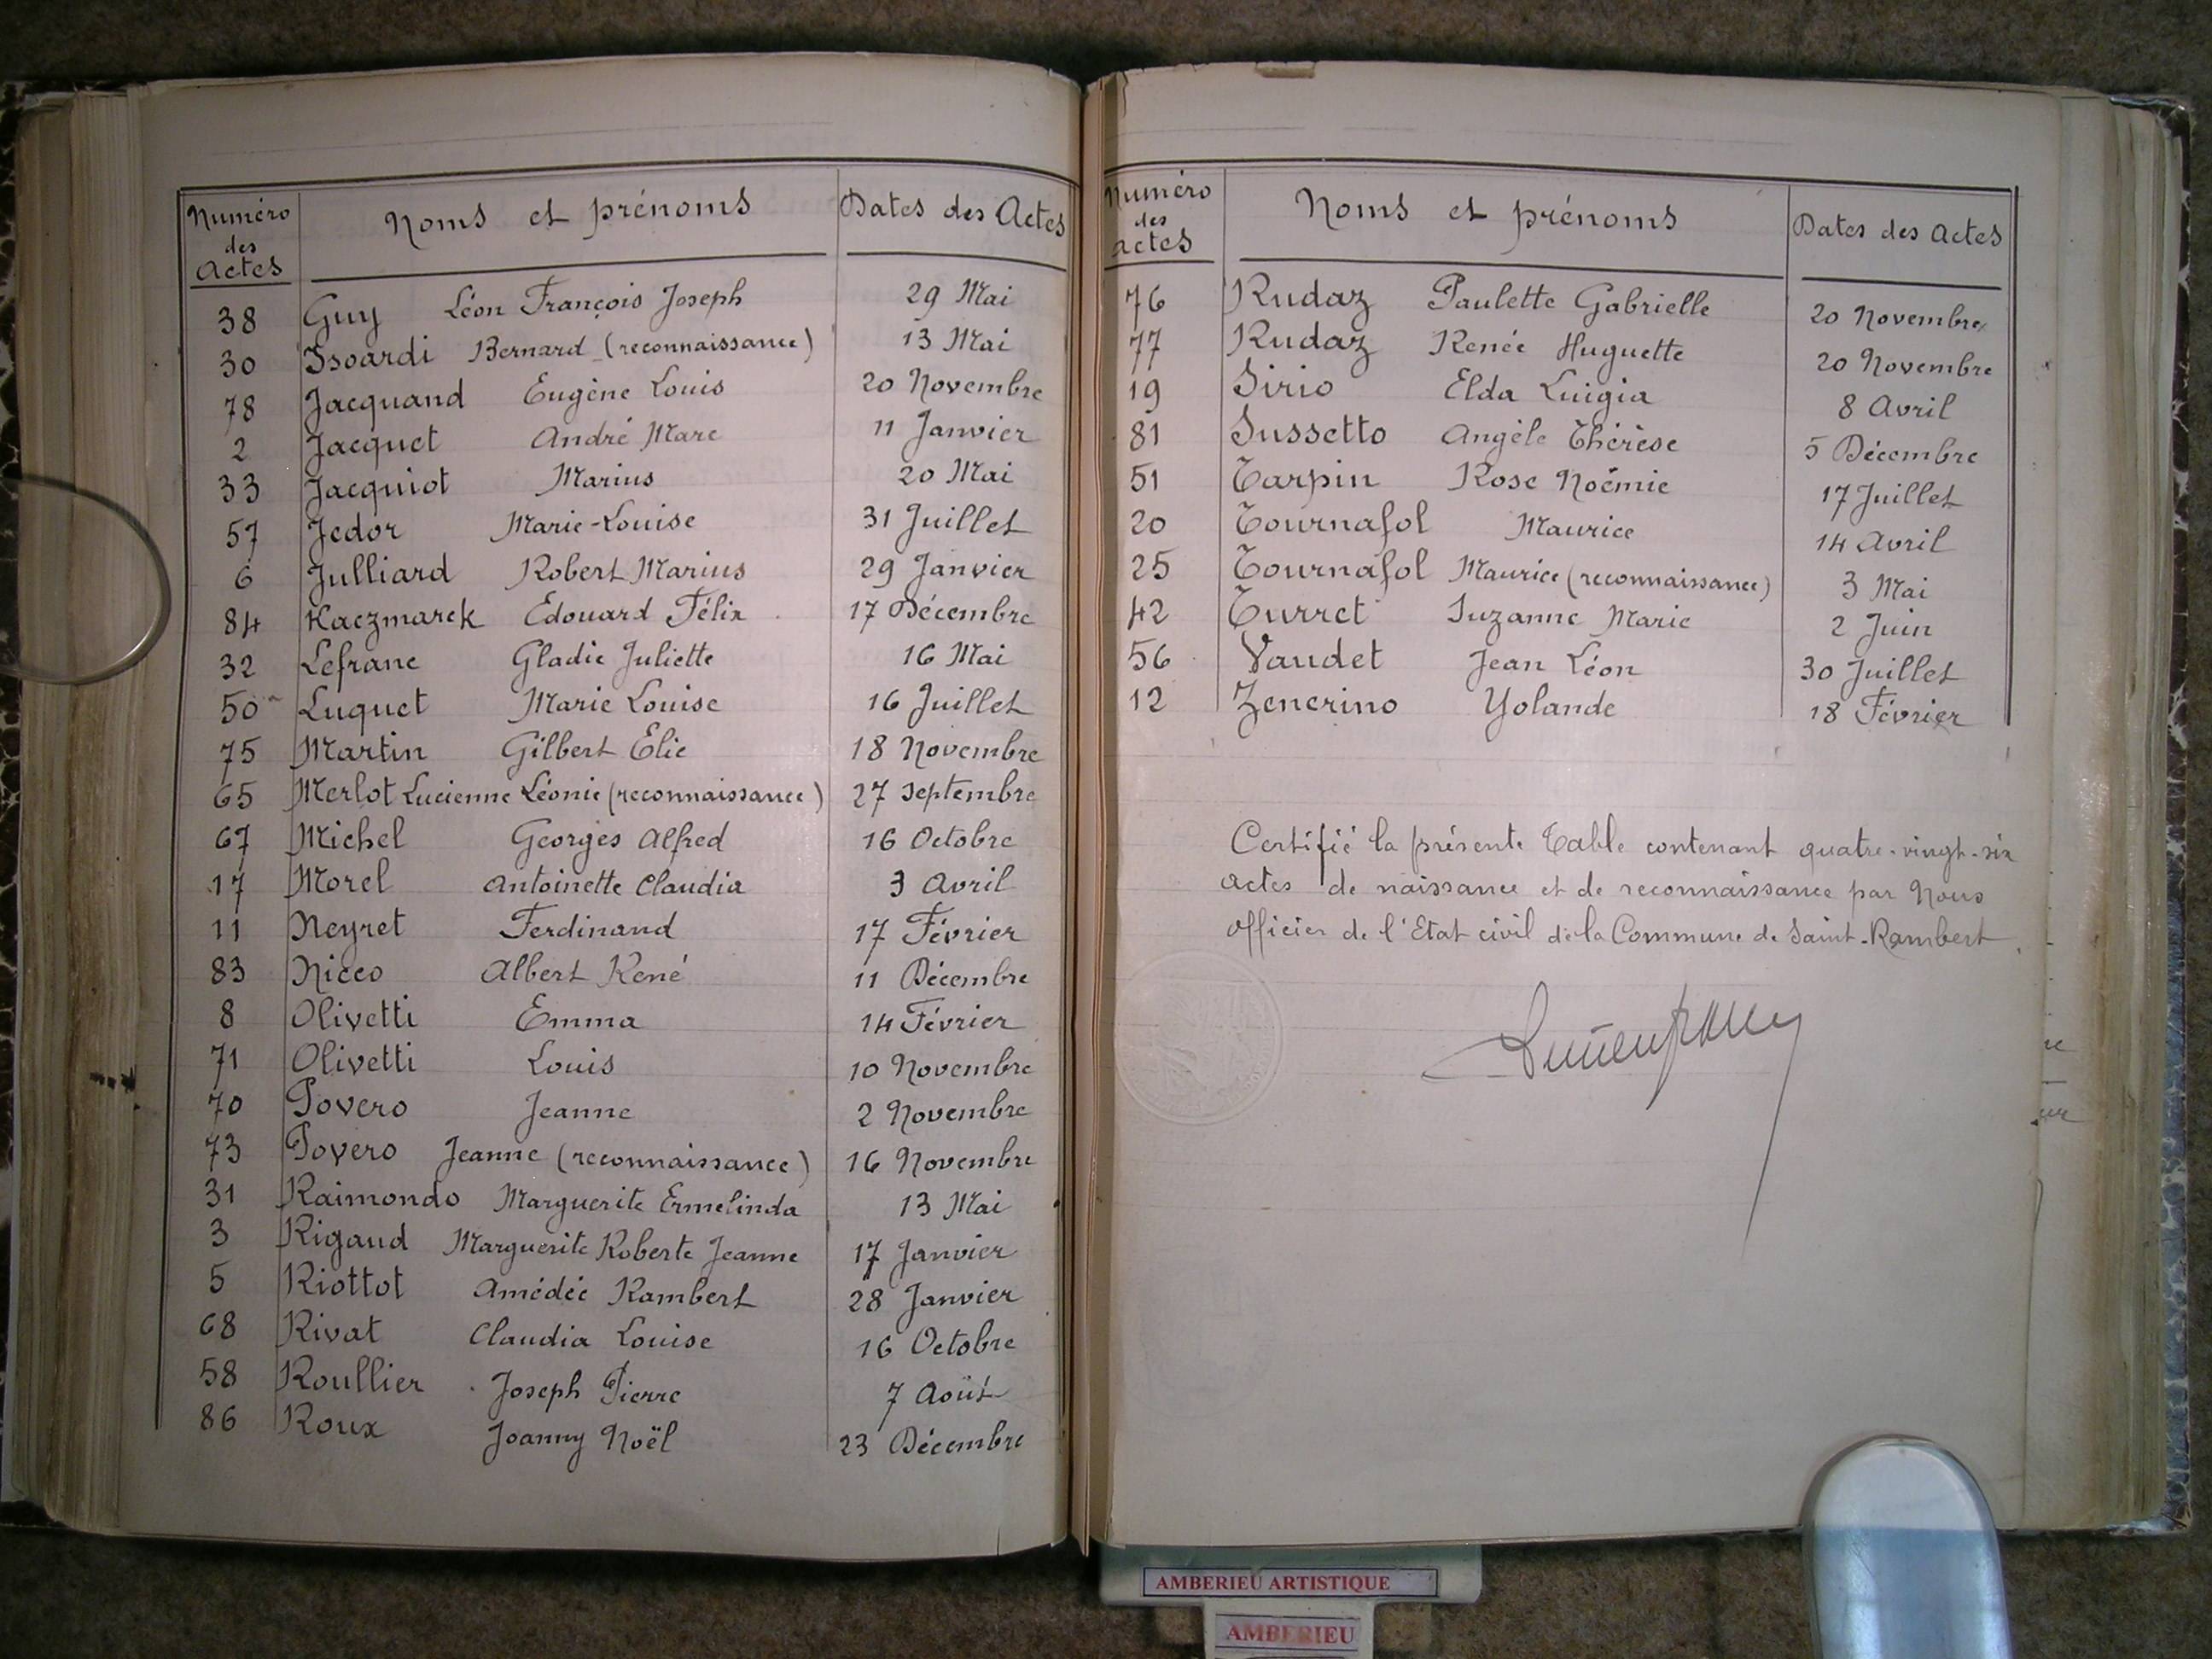 Numéro des Actes Noms et prénoms Dates des Actes
38 Guy Léon François Joseph 29 Mai
30 Isoardi Bernard (reconnaissance) 13 Mai
78 Jacquand Eugène Louis 20 Novembre
2 Jacquet André Marc 11 Janvier
33 Jacquiot Marius 20 Mai
57 Jedor Marie-Louise 31 Juillet
6 Julliard Robert Marius 29 Janvier
84 Kaczmarek Edouard Félix 17 Décembre
32 Lefranc Gladie Juliette 16 Mai
50 Luquet Marie Louise 16 Juillet
75 Martin Gilbert Elie 18 Novembre
65 Merlot Lucienne Léonie (reconnaissance) 27 Septembre
67 Michel Georges Alfred 16 Octobre
17 Morel Antoinette Claudia 3 Avril
11 Neyret Ferdinand 17 Février
83 Nicco Albert René 11 Décembre
8 Olivetti Emma 14 Février
71 Olivetti Louis 10 Novembre
70 Povero Jeanne 2 Novembre
73 Povero Jeanne (reconnaissance) 16 Novembre
31 Raimondo Marguerite Ermelinda 13 Mai
3 Rigaud Marguerite Roberte Jeanne 17 Janvier
5 Riottot Amédée Rambert 28 Janvier
68 Rivat Claudia Louise 16 Octobre
58 Roullier Joseph Pierre 7 Août
86 Roux Joanny Noël 23 Décembre
Numéro des actes Noms et prénoms Dates des actes
76 Rudaz Paulette Gabrielle 20 Novembre
77 Rudaz Renée Huguette 20 Novembre
19 Sirio Elda Luigia 8 Avril
81 Sussetto Angèle Thérèse 5 Décembre
51 Tarpin Rose Noémie 17 Juillet
20 Tournafol Maurice 14 Avril
25 Tournafol Maurice (reconnaissance) 3 Mai
42 Turret Suzanne Marie 2 Juin
56 Vaudet Jean Léon 30 Juillet
12 Zenerino Yolande 18 Février
Certifié la présente Table contenant quatre-vingt-six
actes de naissance et de reconnaissance par Nous
officier de l'Etat civil de la Commune de Saint-Rambert
AMBERIEU ARTISTIQUE
AMBERIEU